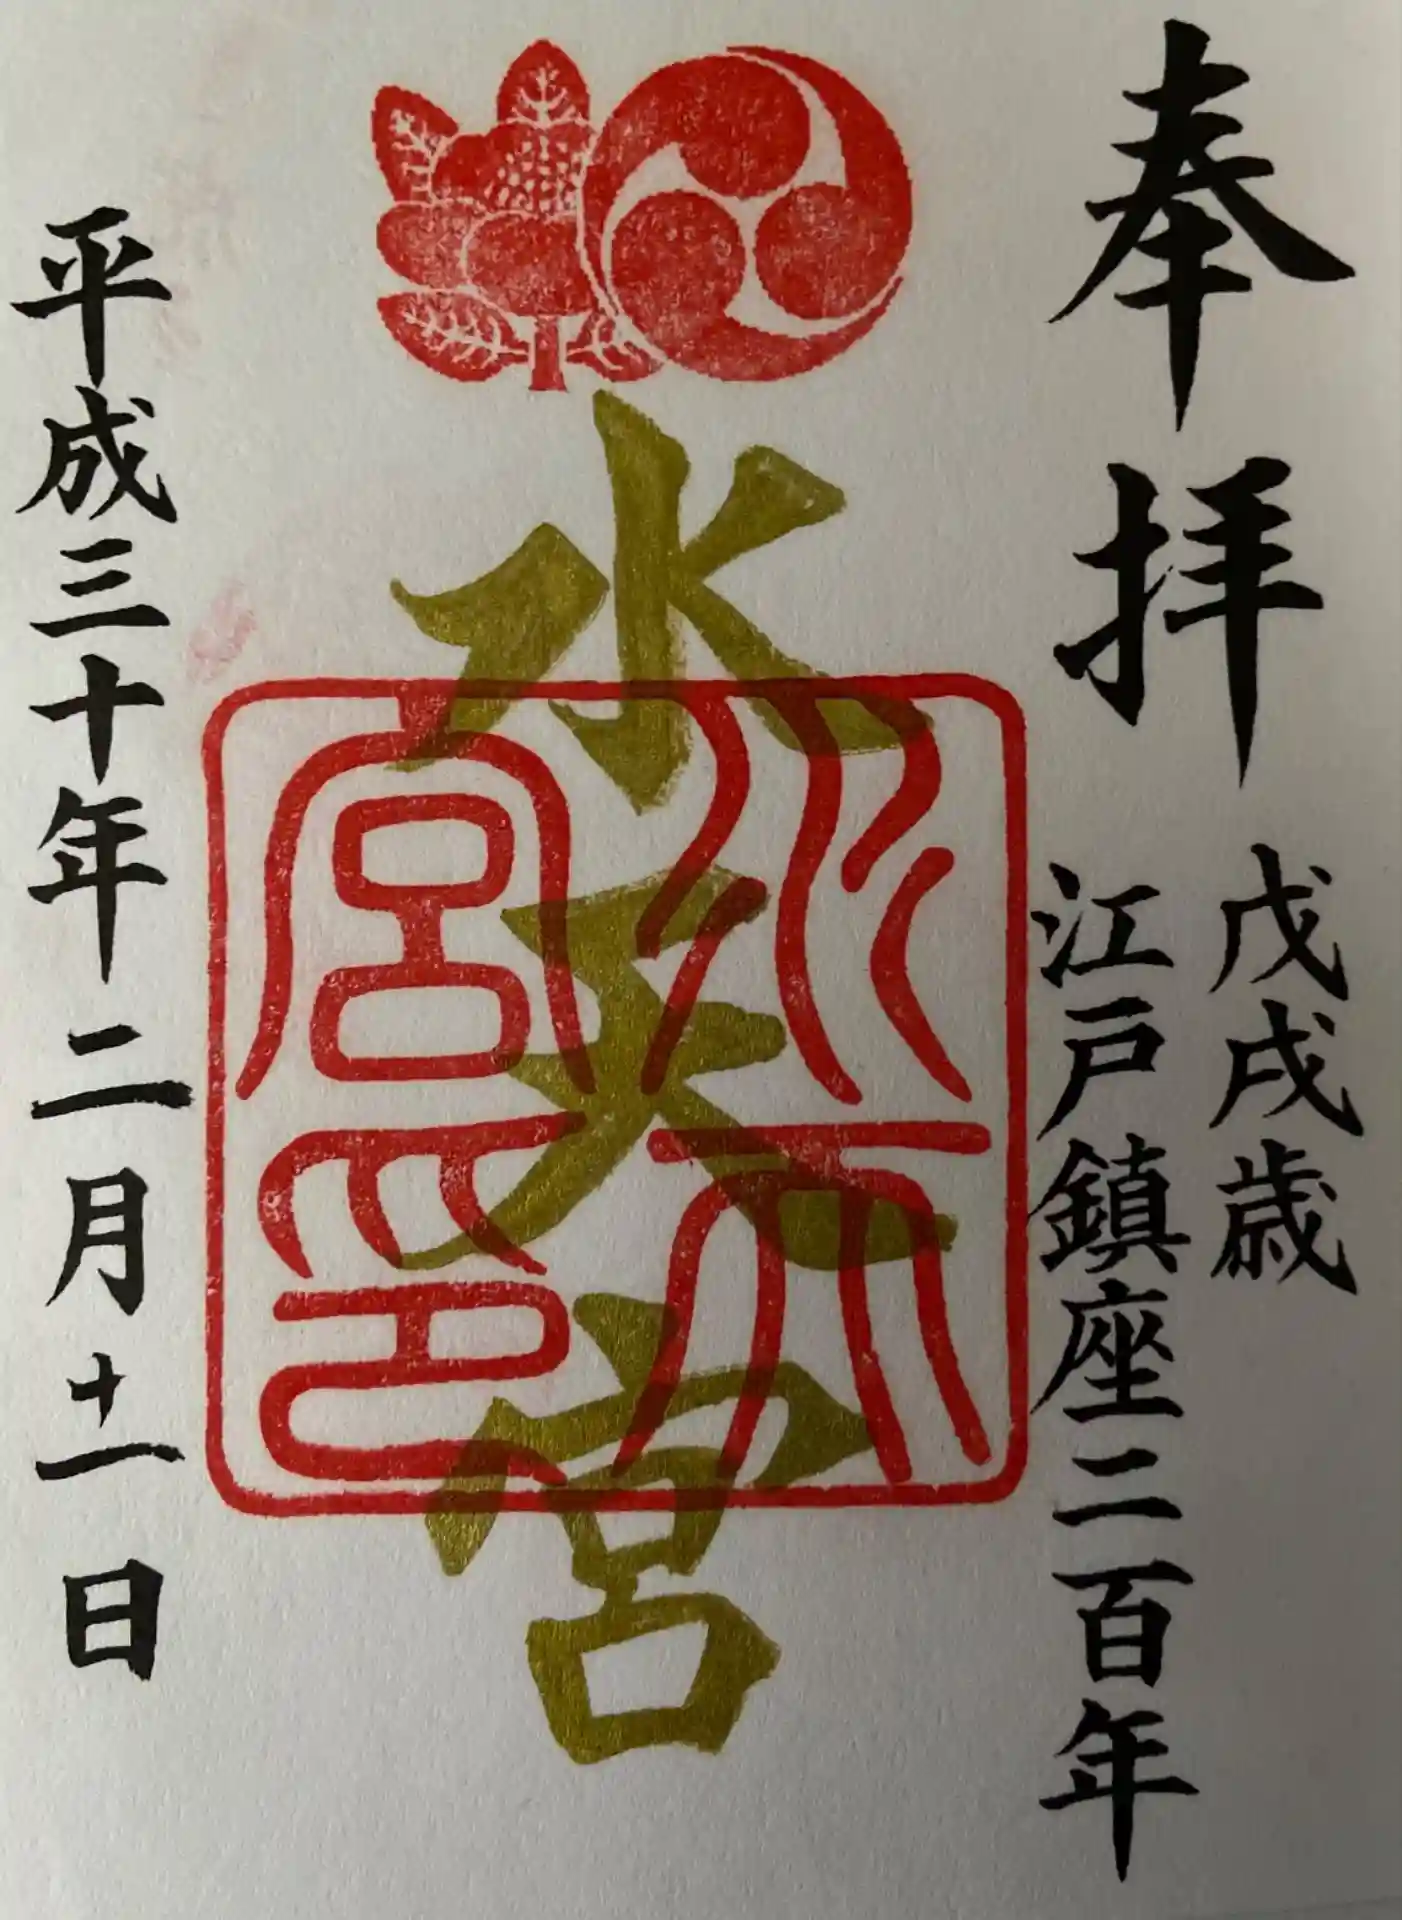 奉拝
戊戌歳
江戸鎮座二百年
水天宮
水天宮印
平成三十年二月十一日